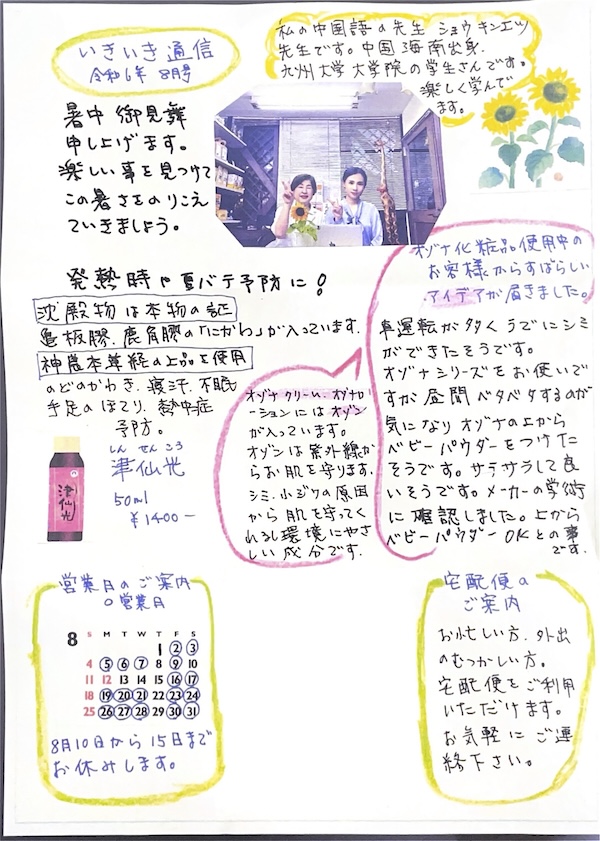 いきいき通信
令和6年 8月号
私の中国語の先生 ショウ キンエツ
先生です。中国海南出身.
九州大学大学院の学生さんです。
楽しく学んで
ます。
暑中御見舞
申し上げます。
楽しい事を見つけて
この暑さをのりこえ
ていきましょう。
発熱時や夏バテ予防に!
沈殿物は本物の証
亀板膠.鹿角膠の「にかわ」が入っています.
神農本草経の上品を使用
のどのかわき、寝汗.不眠
手足のほてり、熱中症
予防。
しん せん こう
津仙光
50ml
¥1400−
津仙光
オゾナ化粧品使用中の
お客様からすばらしい
アイデアが届きました。
車運転が多くうでにシミ
ができたそうです。
オゾナシリーズをお使いで
すが昼間ベタベタするのが
気になりオゾナの上から
ベビーパウダーをつけた
そうです。サラサラして良
いそうです。メーカーの学術
に確認しました。上から
ベビーパウダーOKとの事
です.
オゾナクリーム、オゾナロ
ーションにはオゾン
が入っています。
オゾンは紫外線か
らお肌を守ります.
シミ.小ジワの原因
から肌を守ってく
れるし環境にやさ
しい成分です.
営業日のご案内
○営業日
8 S M T W T F S
1 2 3
4 5 6 7 8 9 10
11 12 13 14 15 16 17
18 19 20 21 22 23 24
25 26 27 28 29 30 31
8月10日から15日まで
お休みします。
宅配便の
ご案内
お忙しい方.外出
のむつかしい方。
宅配便をご利用
いただけます。
お気軽にご連
絡下さい。